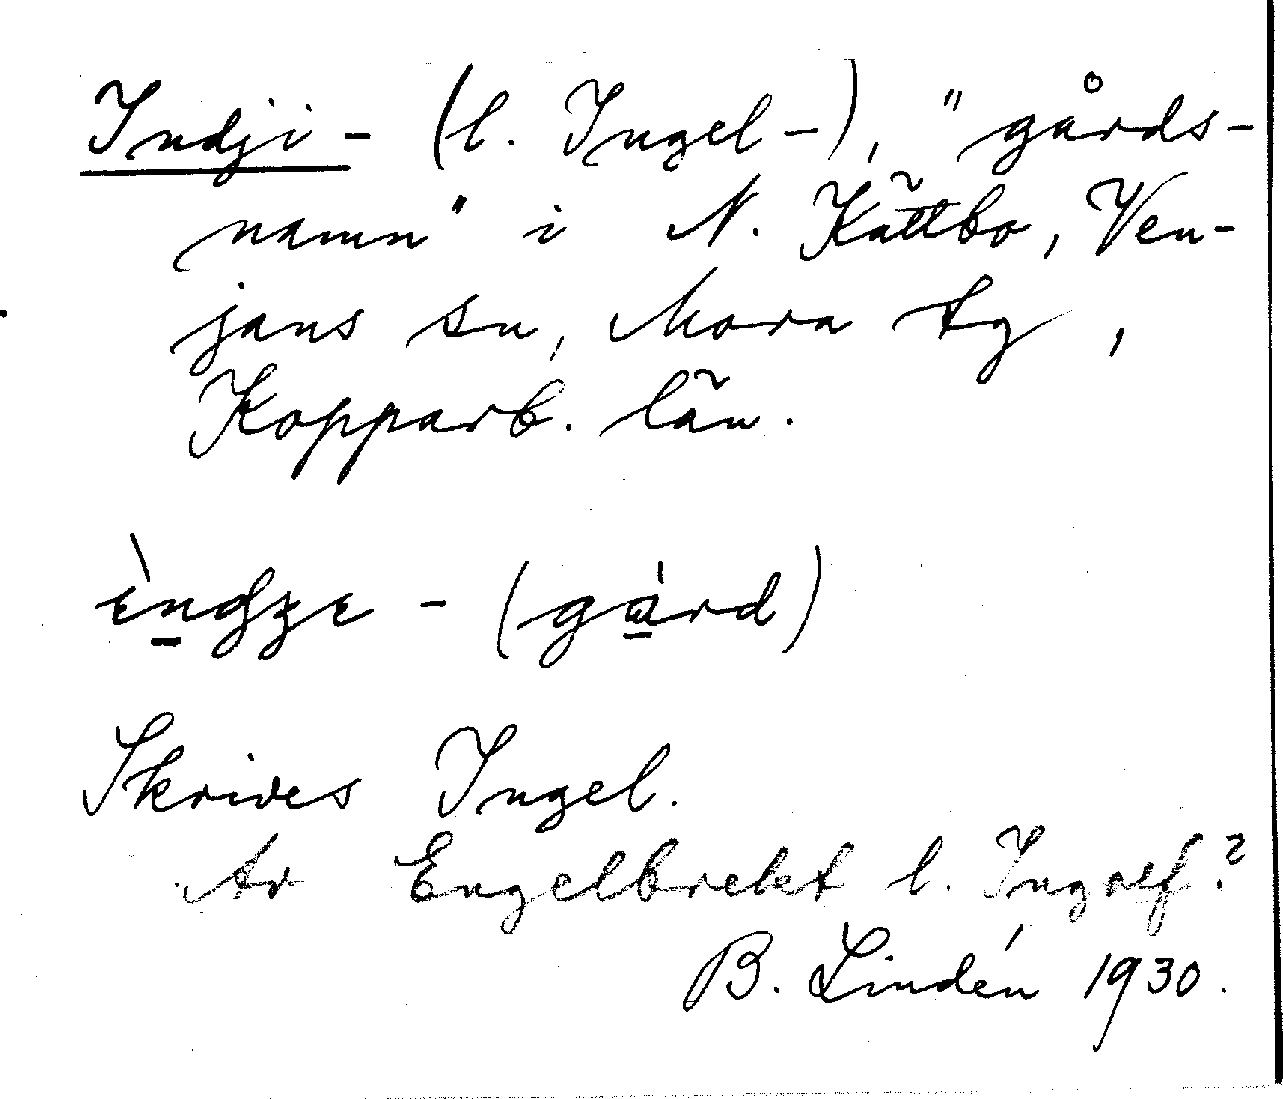 Indji- (l. Ingel-), "gårds-
namn" i N. Kättbo, Ven-
jans sn, Mora tg,
Kopparb. län.
- (gård)
Skrives Ingel.
Av Engelbrekt l. Ingolf?
B. Lindén 1930.